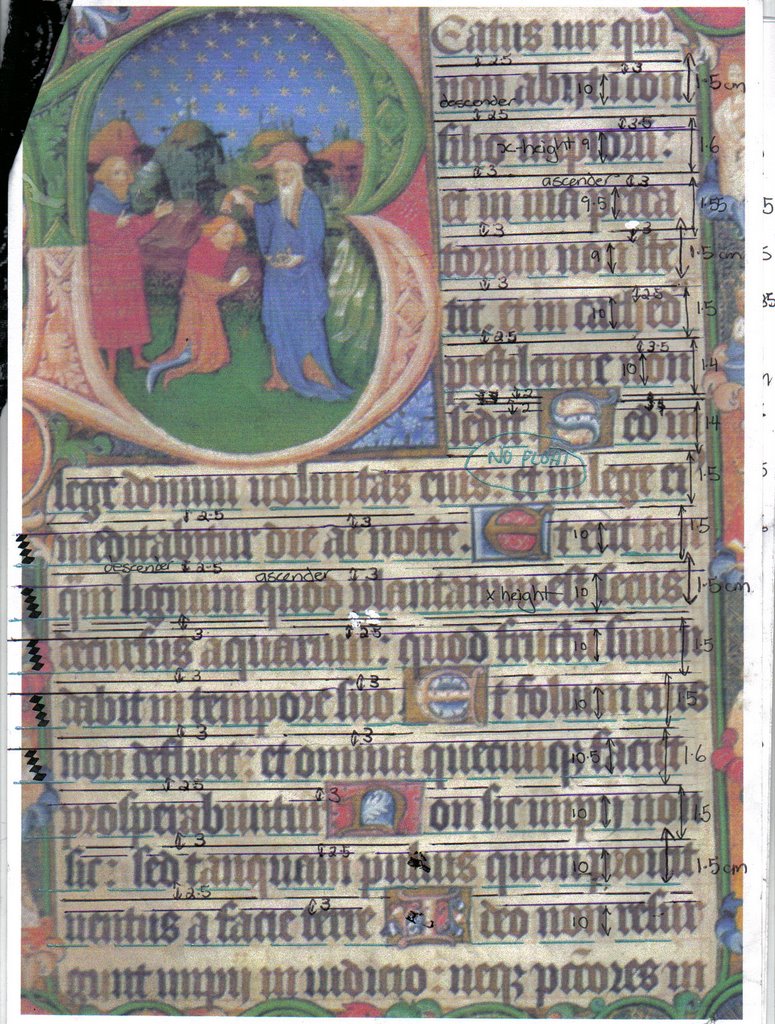 Beatus vir qui
↕ 2.5 ↕3 1.5cm
non abijt i con
10
descender
↕ 2.5 ↕3.5
silio impiorum.
x-height 9 1.6
↕ 3
ascender ↕ 3
et in via pecca
9.5 1.55
↕ 3 3
torum non ste
9 1.5 cm
↕ 3 ↕2.5
tit et in cathed
10 1.5
↕ 2.5 ↕3.5
pestilencie non
10 1.4
↕2
↕2
sedit Sed in
1.4
NO PLOM
lege domini voluntas eius: et in lege ei
1.5
↕ 2.5 ↕3
meditabitur die ac nocte. Et erit ta
10 1.5
descender ↕ 2.5 ascender ↕ 3
qui lignum quod plantatum est secus
x height 10 1.5cm
↕ 3 ↕2.5
decursus aquarum: quod fructum suum
10 1.5
↕ 3 ↕3
dabit in tempore suo Et folium eius
10 1.5
↕ 3 ↕3
non defluet: et omnia quecumqz faciet
10.5 1.6
↕ 2.5 ↕3
prosperabuntur Non sic impij no
10 1.5
↕ 3 ↕2.5
sic: sed tanquam pulvis quem
10 1.5cm
↕ 2.5 ↕3
ventus a facie terre Ideo non resur
10
gunt impij in iudicio: neqz pctores in